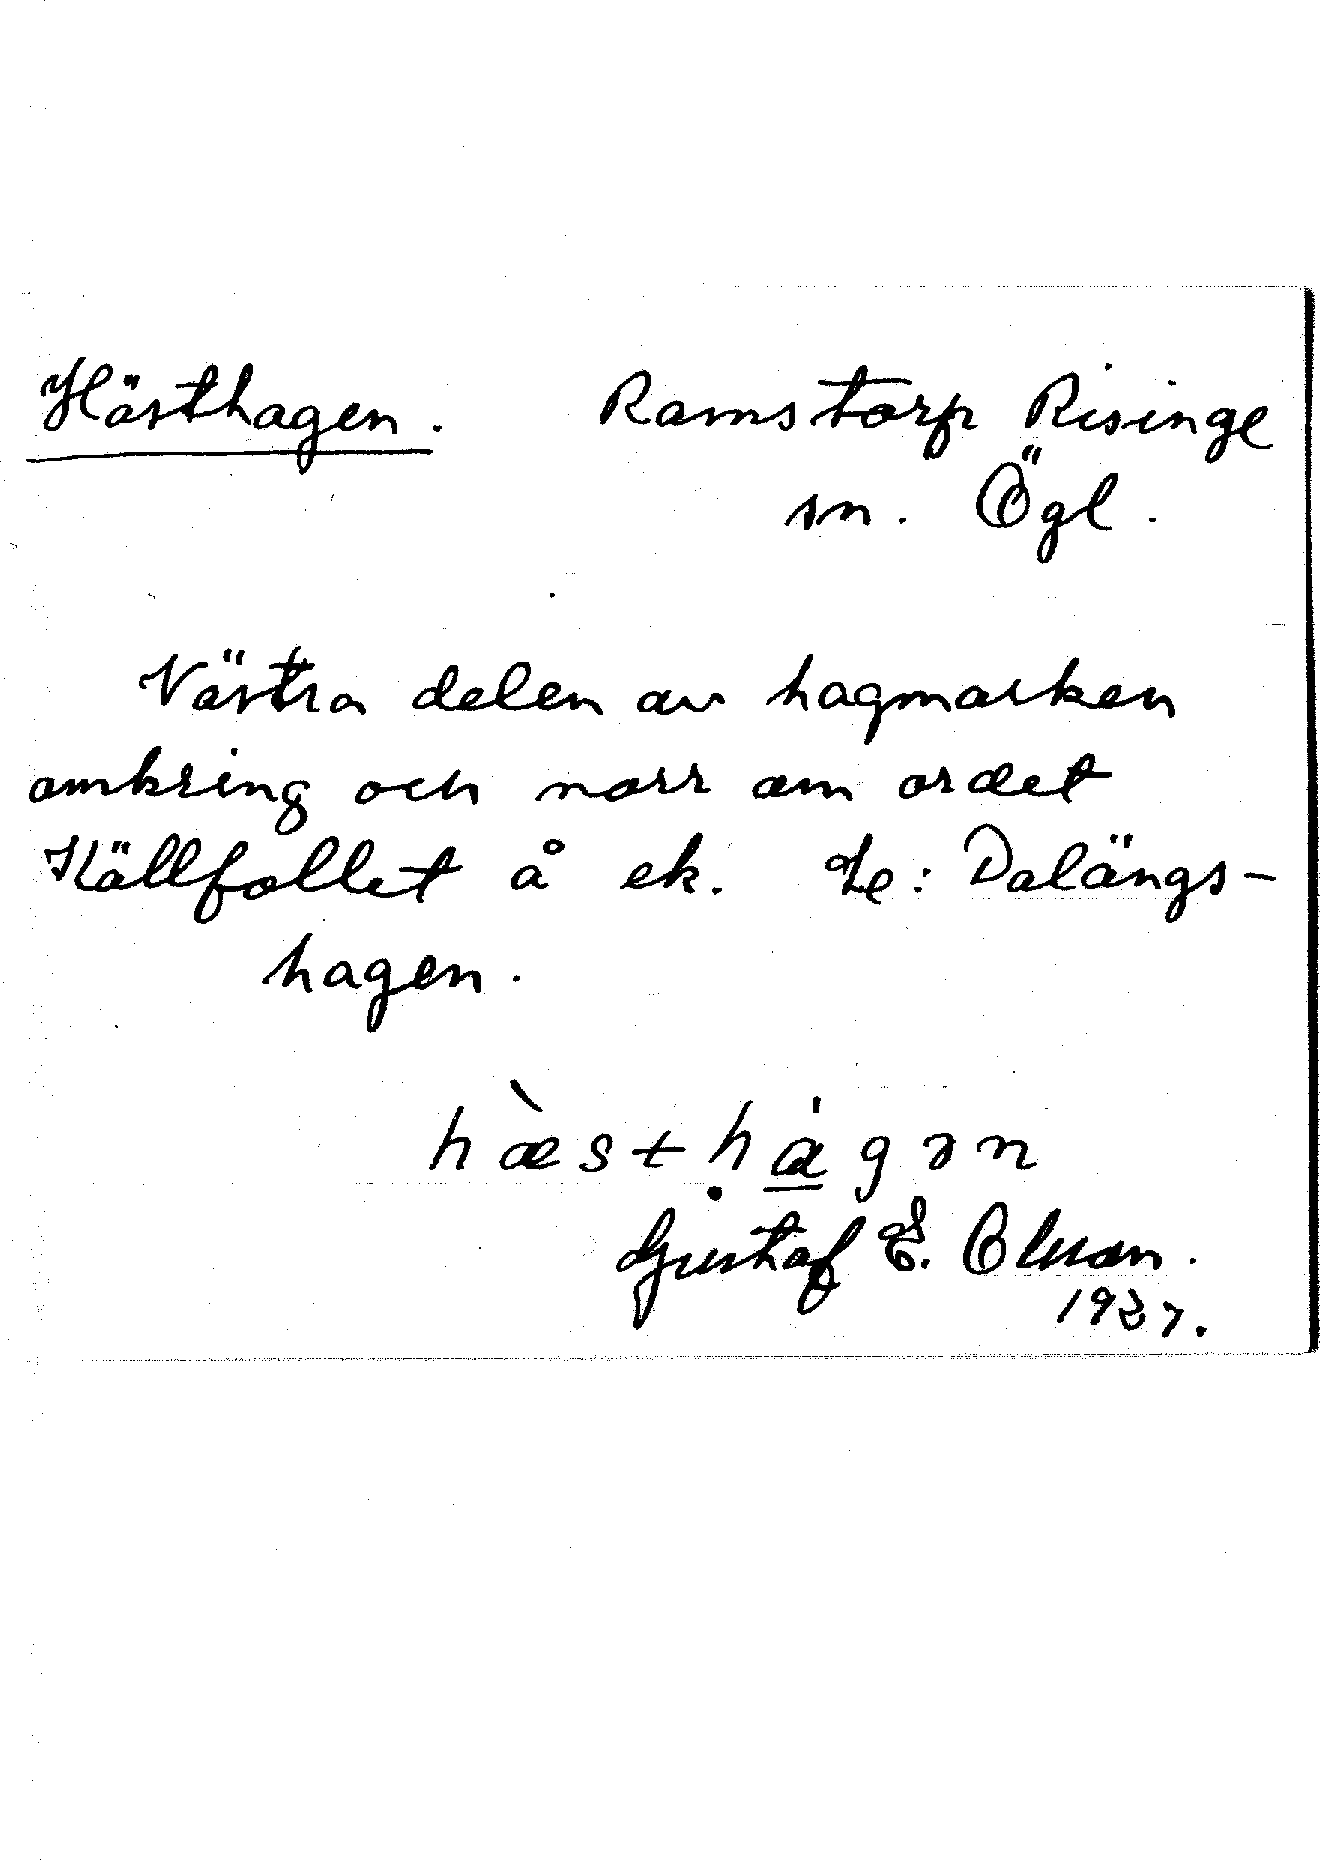 Hästhagen. Ramstorp Risinge
sn. Ögl.
Västra delen av hagmarken
omkring och norr om ordet
Källfallet å ek. Le: Dalängs-
hagen.
hæ̀sthȧ̲gən
Gustaf E. Olsson.
1927.